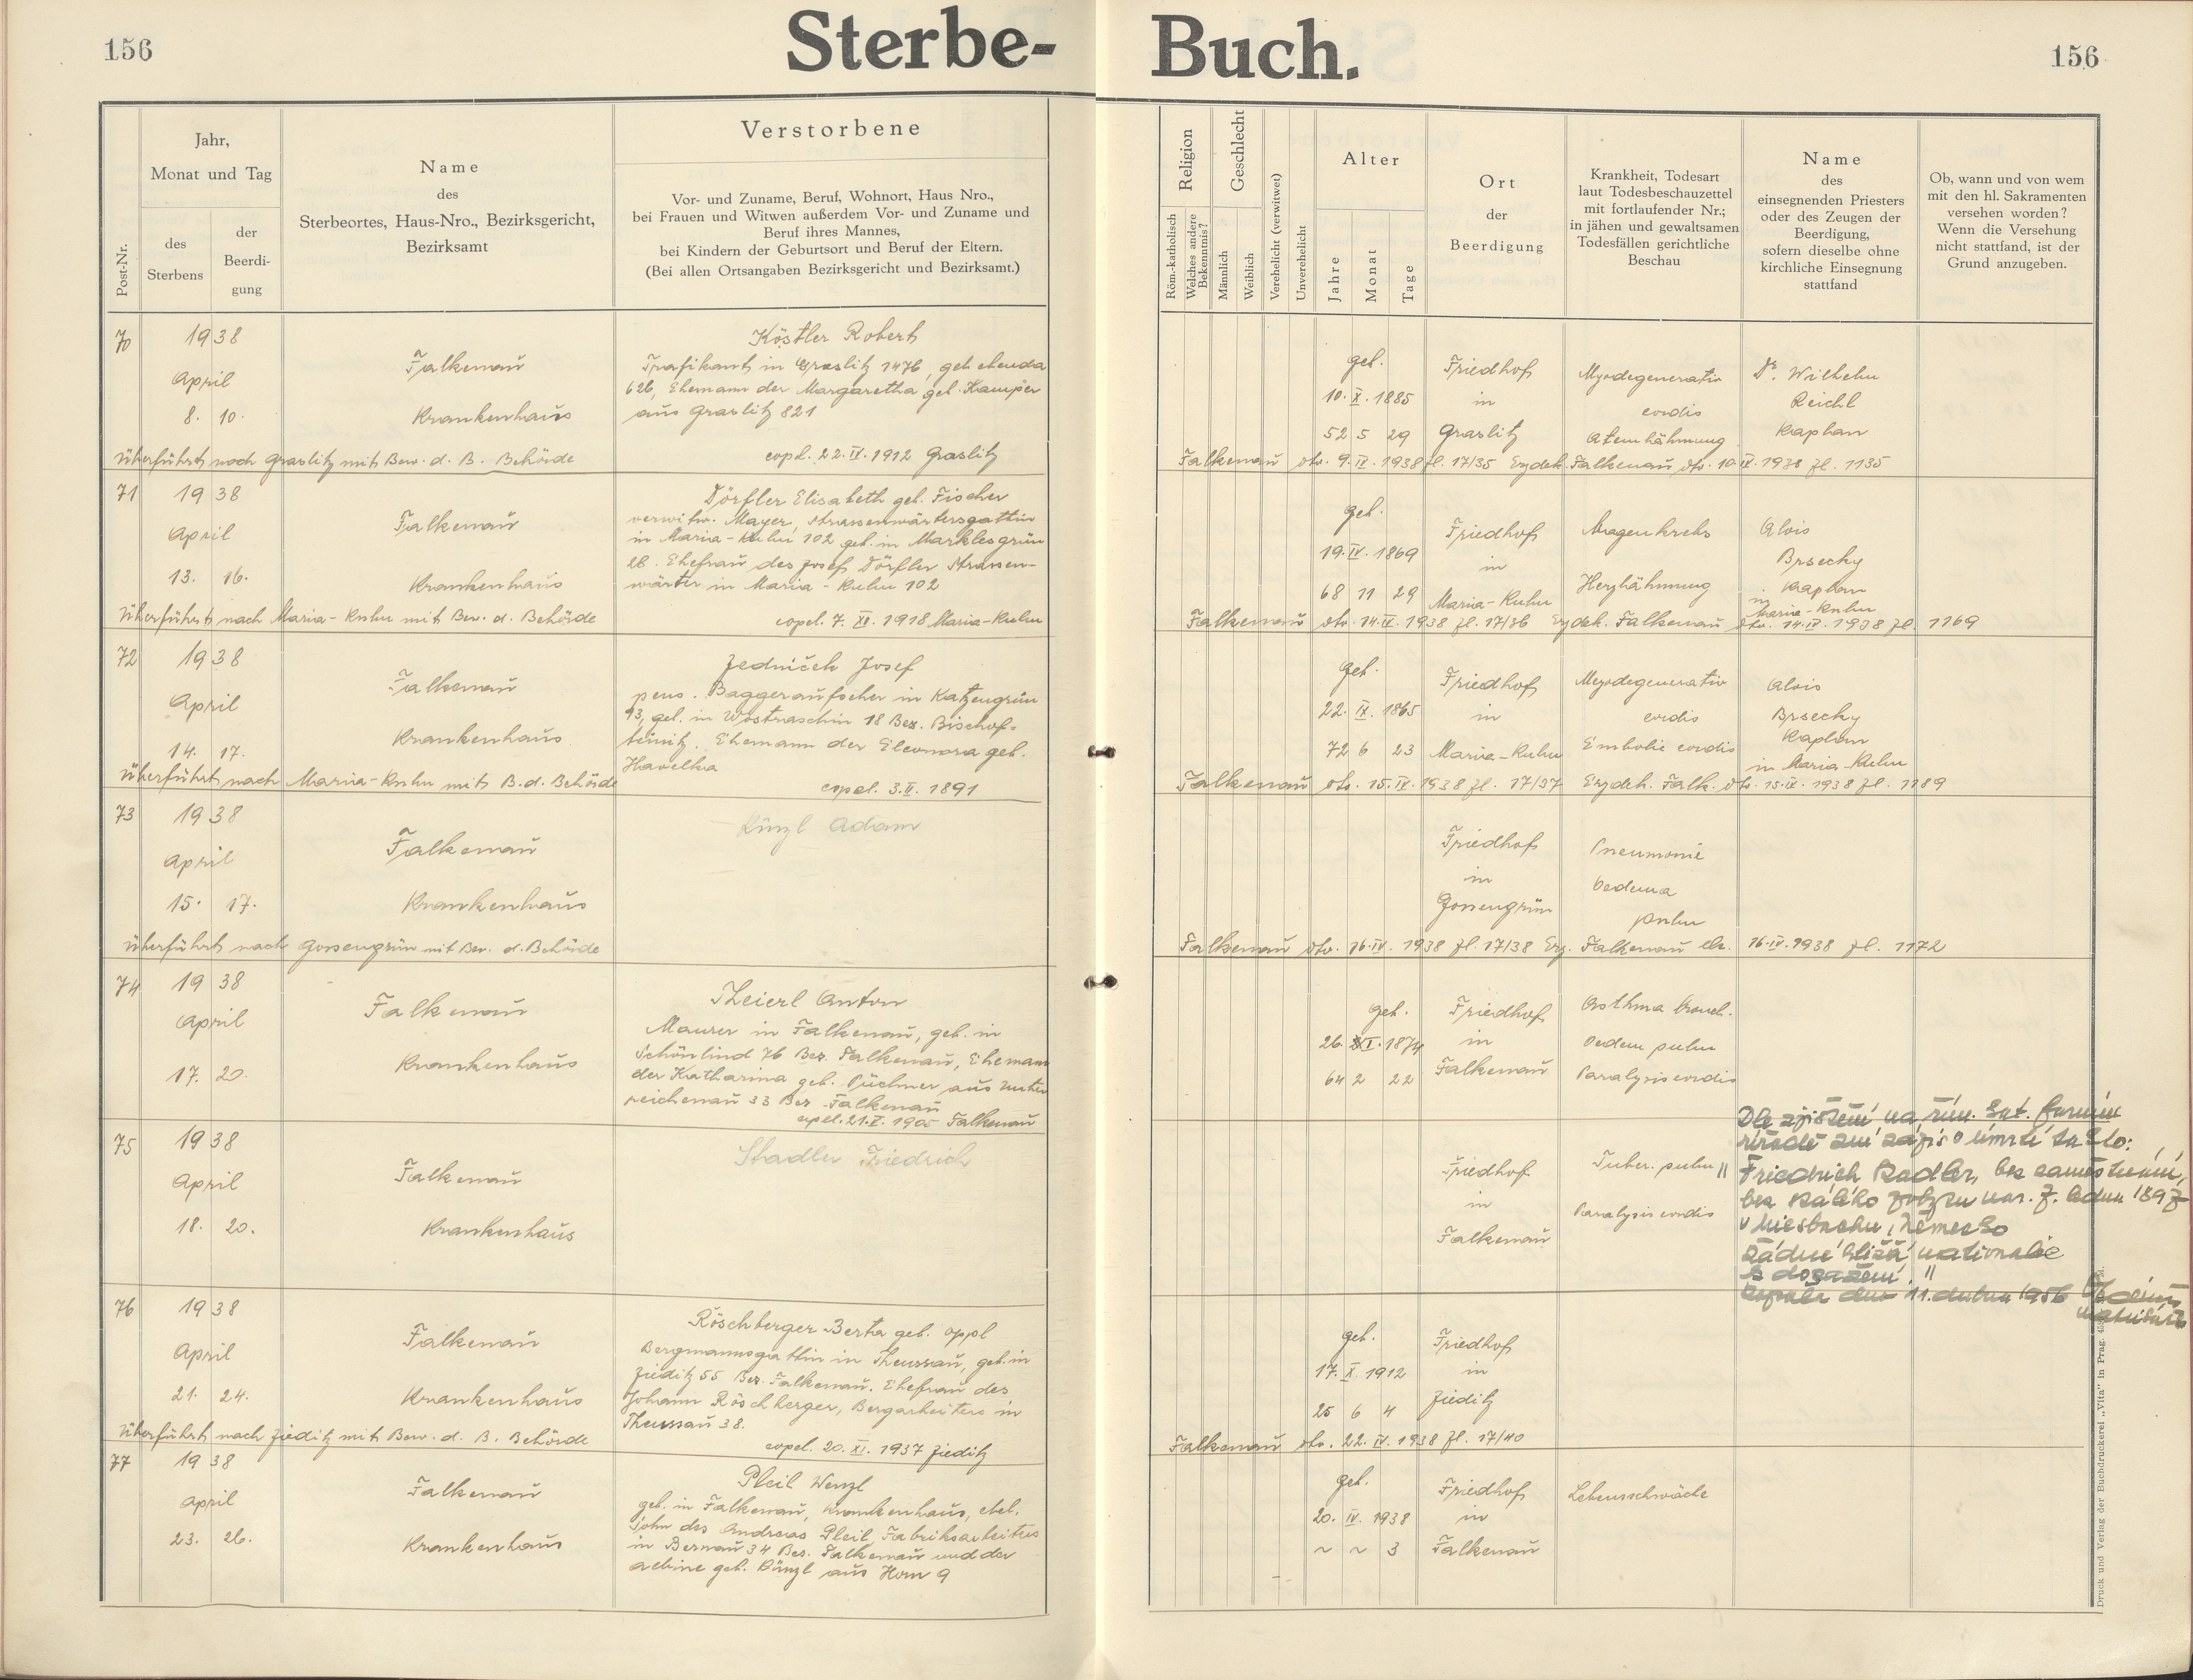 156
Sterbe-
Buch.
156
Post-Nr.
Jahr,
Monat und Tag
des
Sterbens
der
Beerdi-
gung
Name
des
Sterbeortes, Haus-Nro., Bezirksgericht,
Bezirksamt
Verstorbene
Vor- und Zuname, Beruf, Wohnort, Haus Nro.,
bei Frauen und Witwen außerdem Vor- und Zuname und
Beruf ihres Mannes,
bei Kindern der Geburtsort und Beruf der Eltern.
(Bei allen Ortsangaben Bezirksgericht und Bezirksamt.)
Religion
Röm.-katholisch
Welches andere
Bekenntnis?
Geschlecht
Männlich
Weiblich
Verehelicht (verwitwet)
Unverehelicht
Alter
Jahre
Monat
Tage
Ort
der
Beerdigung
Krankheit, Todesart
laut Todesbeschauzettel
mit fortlaufender Nr.;
in jähen und gewaltsamen
Todesfällen gerichtliche
Beschau
Name
des
einsegnenden Priesters
oder des Zeugen der
Beerdigung,
sofern dieselbe ohne
kirchliche Einsegnung
stattfand
Ob, wann und von wem
mit den hl. Sakramenten
versehen worden?
Wenn die Versehung
nicht stattfand, ist der
Grund anzugeben.
70
1938
April
8. 10.
Falkenau
Krankenhaus
Köstler Robert
Trafikant in Graslitz 1476, geb. ebenda
626, Ehemann der Margaretha geb. Kamper
aus Graslitz 821
copel. 22. IV. 1912 Graslitz
überführt nach Graslitz mit Bew. d. B. Behörde
geb.
10. X. 1885
52 5 29
Friedhof
in
Graslitz
Myodegeneratio
cordis
Atemlähmung
Dr. Wilhelm
Reichl
Kaplan
Falkenau dto. 9. IV. 1938 Zl. 17/35 Erzdek. Falkenau dto. 10. IV. 1938 Zl. 1135
71
1938
April
13. 16.
Falkenau
Krankenhaus
Dörfler Elisabeth geb. Fischer
verwitw. Mayer, Strassenwärtersgattin
in Maria-Kulm 102 geb. in Marklesgrün
26. Ehefrau des Josef Dörfler Strassen-
wärter in Maria-Kulm 102
copel. 7. XI. 1918 Maria-Kulm
überführt nach Maria-Kulm mit Bew. d. Behörde
geb.
19. IV. 1869
68 11 29
Friedhof
in
Maria-Kulm
Magenkrebs
Herzlähmung
Alois
Brsecky
Kaplan
in
Maria-Kulm
Falkenau dto. 14. IV. 1938 Zl. 17/36 Erzdek. Falkenau dto. 14. IV. 1938 Zl. 1169
72
1938
April
14. 17.
Falkenau
Krankenhaus
Jedniček Josef
pens. Baggeraufseher in Katzengrün
93, geb. in Wostraschin 18 Bez. Bischof-
teinitz. Ehemann der Eleonora geb.
Havelka
copel. 3. II. 1891
überführt nach Maria-Kulm mit B. d. Behörde
geb.
22. IX. 1865
72 6 23
Friedhof
in
Maria-Kulm
Myodegeneratio
cordis
Embolie cordis
Alois
Brsecky
Kaplan
in Maria-Kulm
Falkenau dto. 15. IV. 1938 Zl. 17/37 Erzdek. Falk. dto. 15. IV. 1938 Zl. 1189
73
1938
April
15. 17.
Falkenau
Krankenhaus
Künzl Adam
überführt nach Gossengrün mit Bew. d. Behörde
Friedhof
in
Gossengrün
Pneumonie
Oedema
pulm
Falkenau dto. 16. IV. 1938 Zl. 17/38 Erz. Falkenau 16. IV. 1938 Zl. 1172
74
1938
April
17. 20.
Falkenau
Krankenhaus
Theierl Anton
Maurer in Falkenau, geb. in
Schönlind 76 Bez. Falkenau, Ehemann
der Katharina geb. Püchner aus Unter
reichenau 33 Bez. Falkenau
copel. 21. X. 1905 Falkenau
geb.
26. 1874
64 2 22
Friedhof
in
Falkenau
Asthma bronch.
Oedem pulm
Paralysis cordis
75
1938
April
18. 20.
Falkenau
Krankenhaus
Stadler Friedrich
Friedhof
in
Falkenau
Tuber. pulm
Paralysis cordis
Dle zjištění na řím. kat. farním
úřadě zní zápis o úmrtí takto:
"Friedrich Kadler, bez zaměstnání,
bez nar. 7. ledna 1897
v Miesbachu, Německo
žádné bližší nationalie
k dosažení."
11. dubna 1956
76
1938
April
21. 24.
Falkenau
Krankenhaus
Röschberger Berta geb. Oppl
Bergmannsgattin in Theussau, geb. in
Zieditz 55 Bez. Falkenau. Ehefrau des
Johann Röschberger, Bergarbeiters in
Theussau 38.
copel. 20. XI. 1937 Zieditz
überführt nach Zieditz mit Bew. d. B. Behörde
geb.
17. X. 1912
25 6 4
Friedhof
in
Zieditz
Falkenau dto. 22. IV. 1938 Zl. 17/40
77
1938
April
23. 26.
Falkenau
Krankenhaus
Pleil Wenzl
geb. in Falkenau, Krankenhaus, ehel.
Sohn des Andreas Pleil, Fabriksarbeiters
in Bernau 34 Bez. Falkenau und der
geb. Künzl aus Horn 9
geb.
20. IV. 1938
~ ~ 3
Friedhof
in
Falkenau
Lebensschwäche
Druck und Verlag der Buchdruckerei „Vita" in Prag.